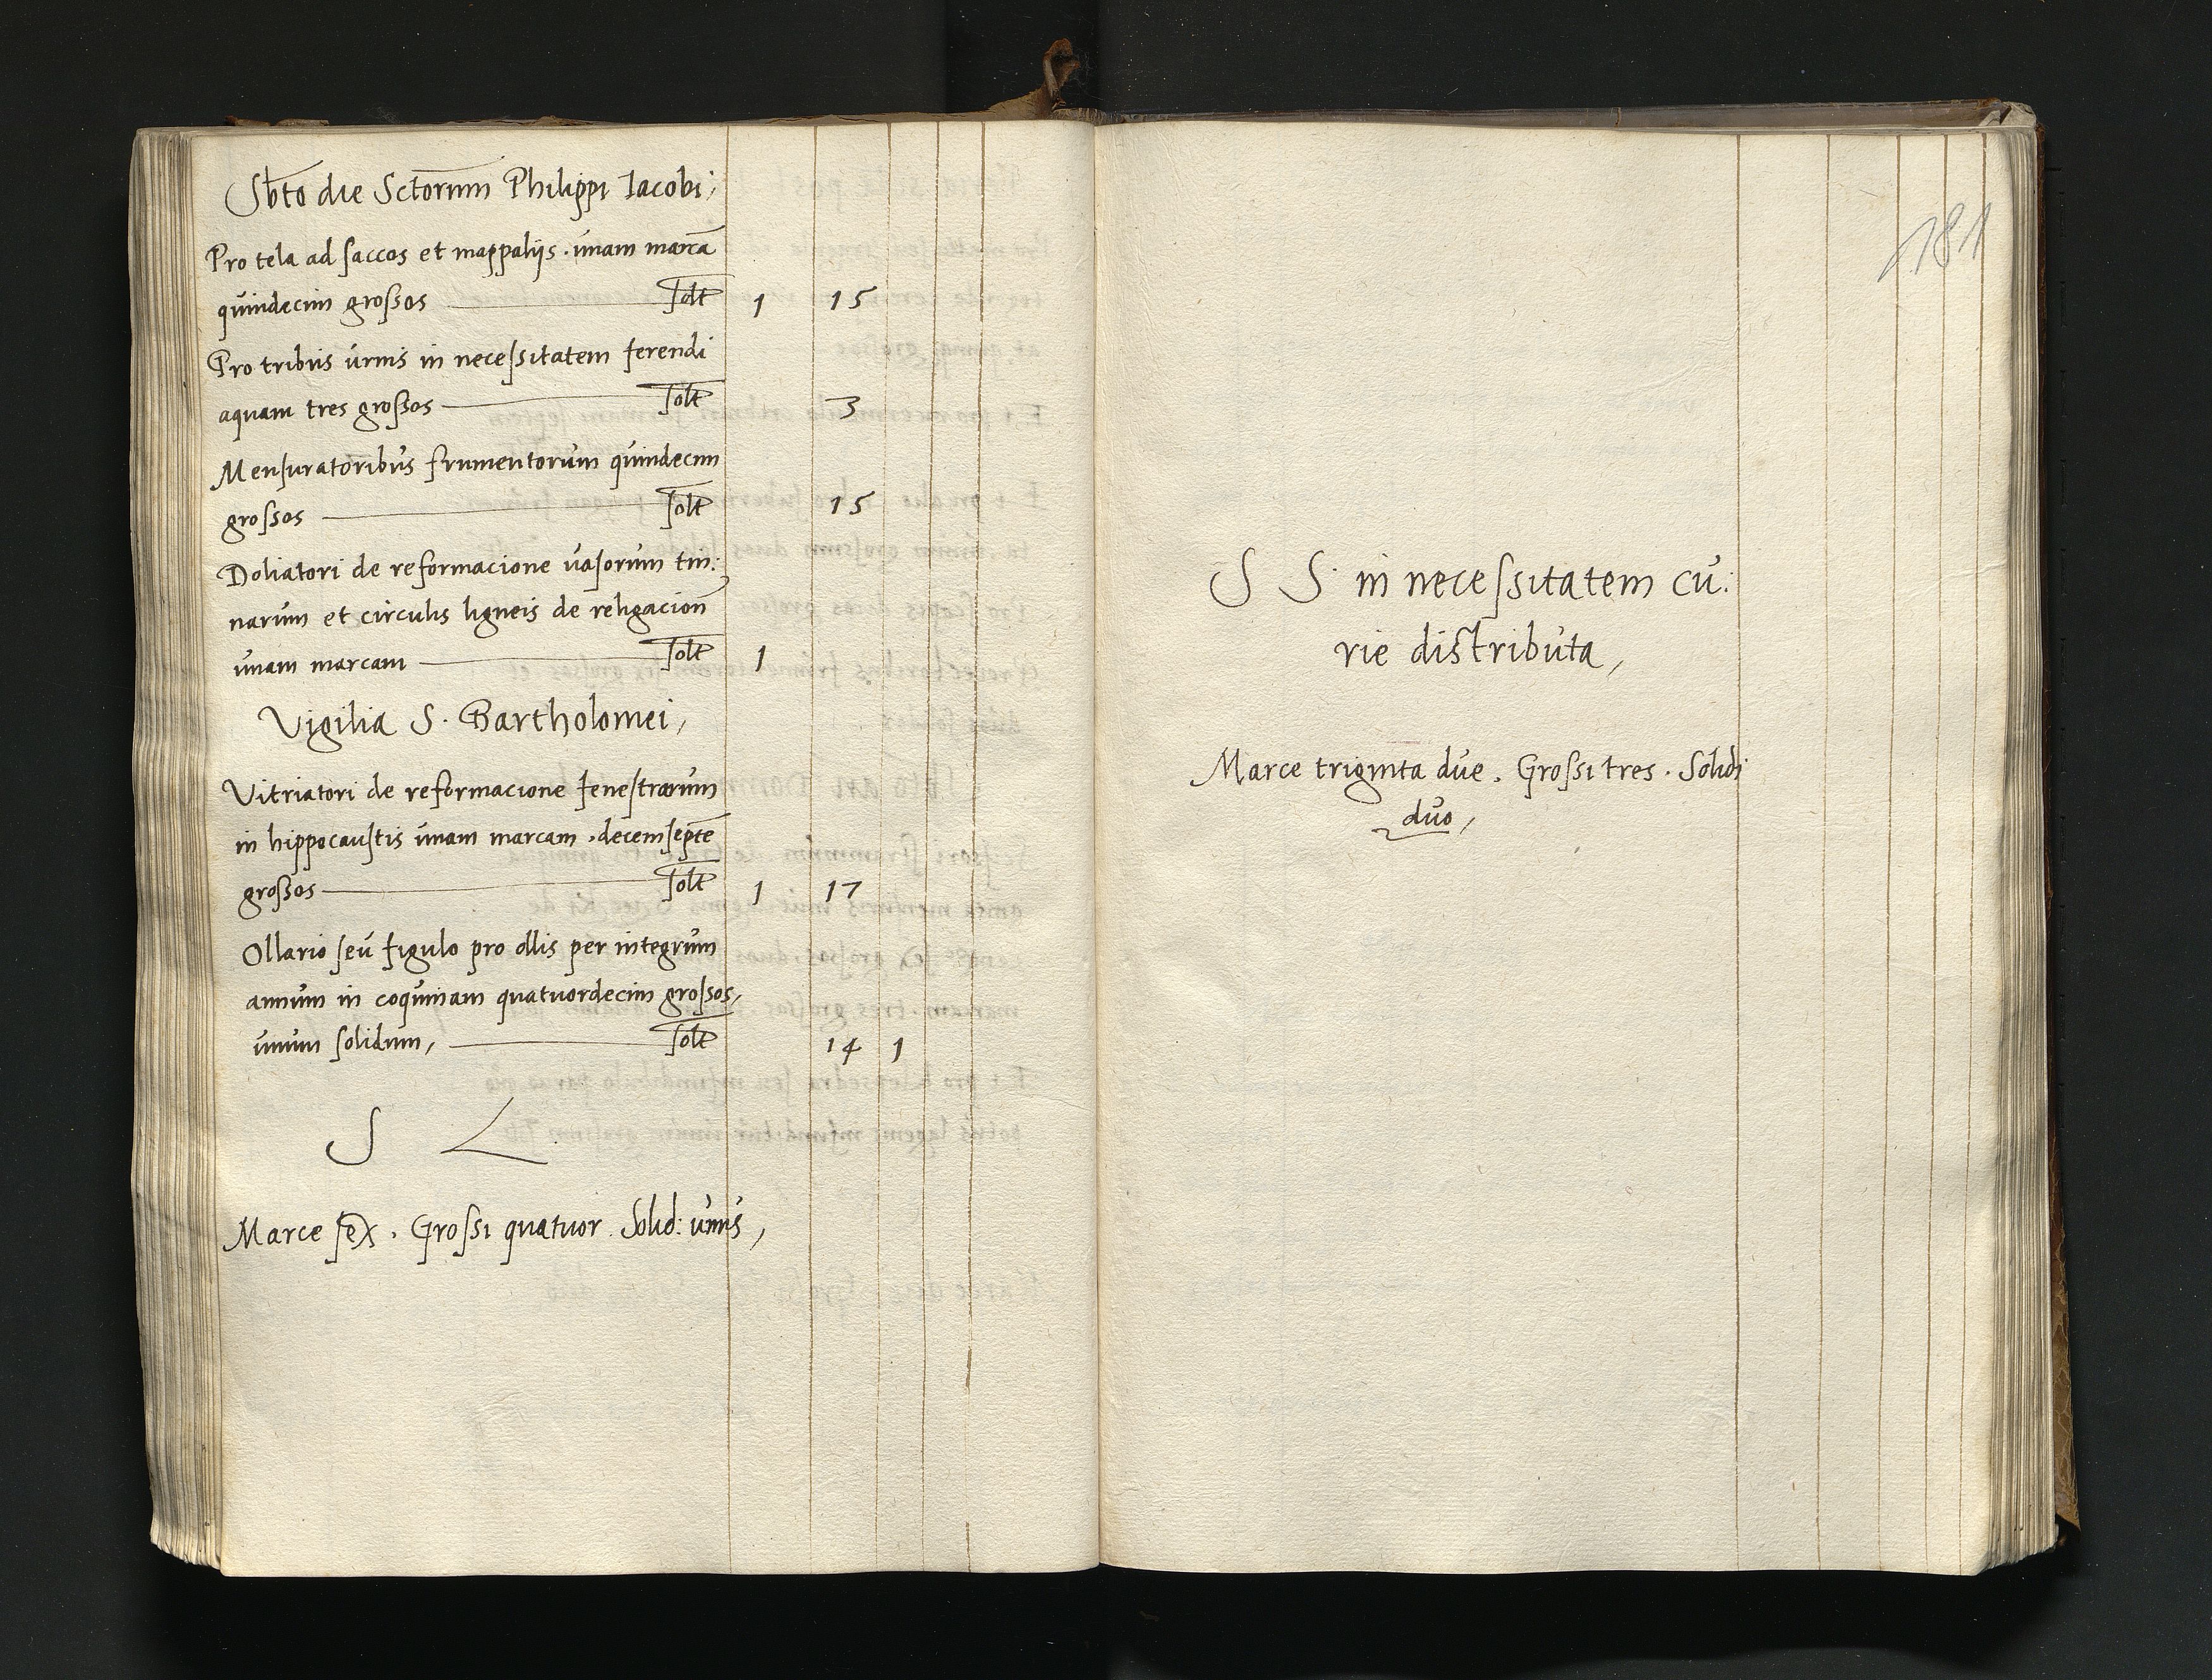 Sbto die Sctorum Philippi Iacobi;
Pro tela ad saccos et mappalijs. unam marcā
quindecim grossos solt 1 15
Pro tribus urnis in necessitatem ferendi
aquam tres grossos solt 3
Mensuratoribus frumentorum quindecim
grossos solt 15
Doliatori de reformacione vasorum tin:
narum et circulis ligneis de religacion̄
unam marcam solt 1
Vigilia S. Bartholomei,
Vitriatori de reformacione fenestrarum
in hippocaustis unam marcam. decemseptē
grossos solt 1 17
Ollario seu figulo pro ollis per integrum
annum in coquinam quatuordecim grossos,
unum solidum, solt 14 1
S L
Marce sex. Grossi quatuor. Solid: unus,
181
S S. in necessitatem cu:
rie distributa,
Marce triginta due. Grossi tres. Solidi
duo,